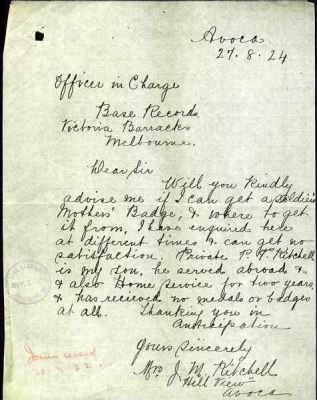 Avoca
27.8.24
Officer in Charge
Base Records
Victoria Barracks
Melbourne.
Dear Sir
Will you kindly
advise me if I can get a soldiers
Mothers' Badge, & where to get
it from, I have enquired here
at different times & can get no
satisfaction. Private P. T. Kitchell
is my son, he served abroad &
& also Home Service for two years,
& has recieved no medals or badges
at all. Thanking you in
Anticipation
Yours Sincerely
Mrs J. M. Kitchell
Hill View
Avoca